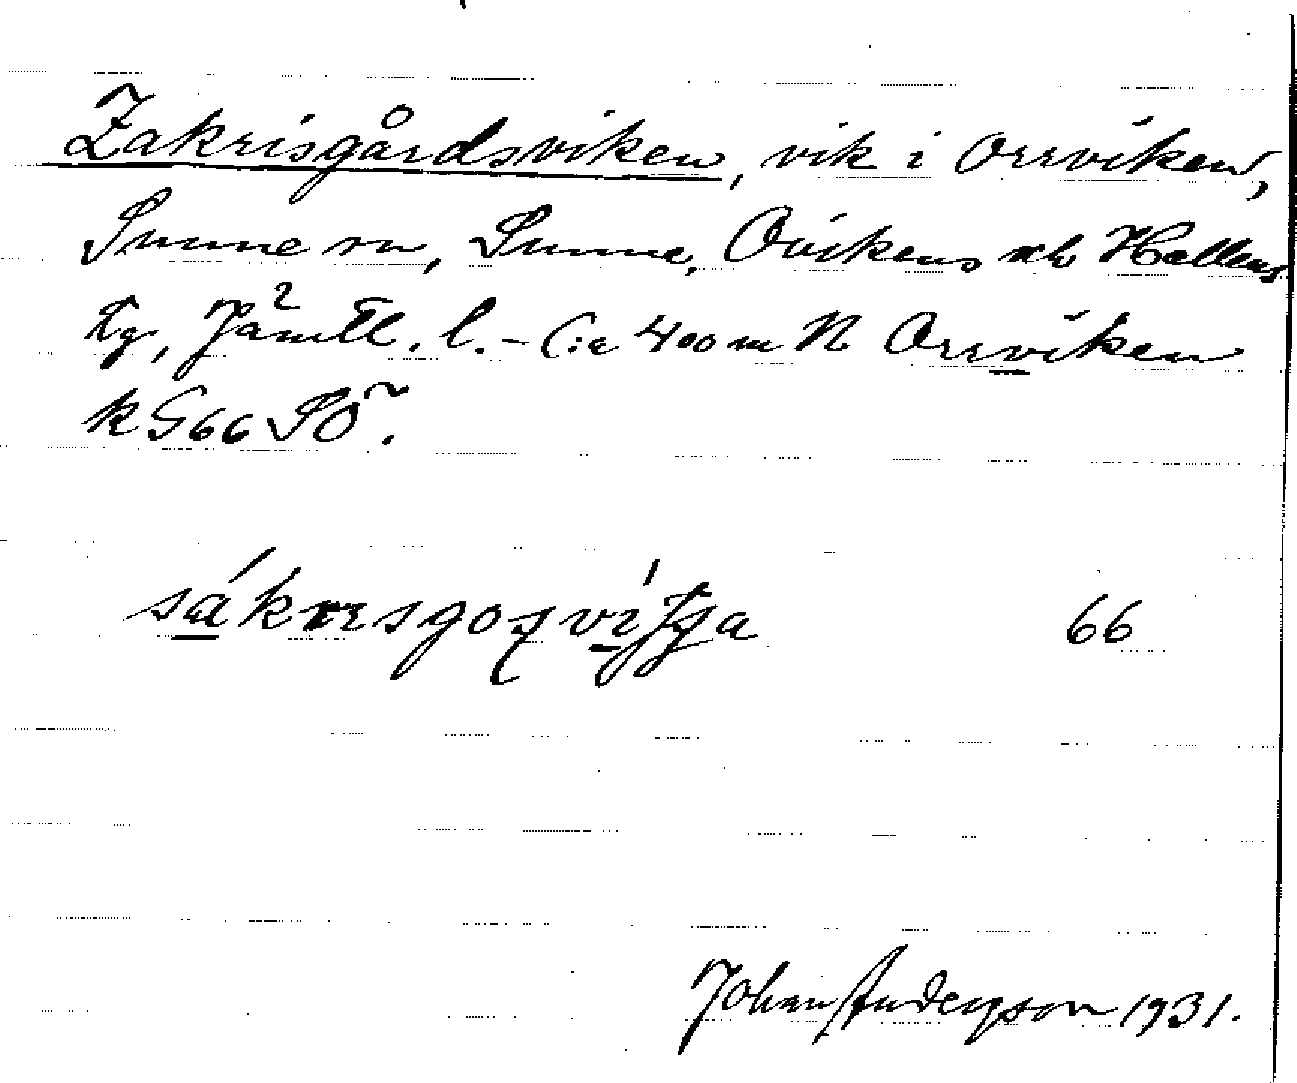 Zakrisgårdsviken, vik i Orrviken,
Sunne sn, Sunne, Ovikens och Hallens
tg, Jämtl. l. - C:a 400 m N Orrviken
k G66 SÖ.
66
Johan Anderson 1931.